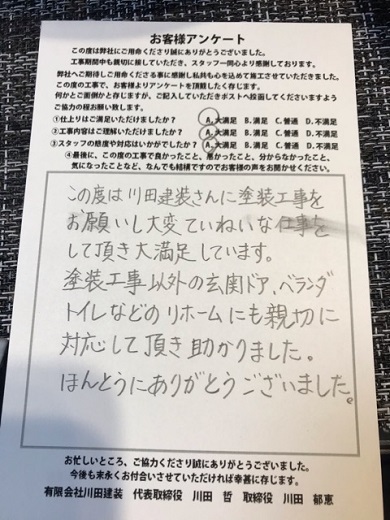 お客様アンケート
この度は弊社にご用命くださり誠にありがとうございました。
工事期間中も親切に接していただき、スタッフ一同心より感謝しております。
弊社へご期待しご用命くださる事に感謝し私共も心を込めて施工させていただきました。
この度の工事で、お客様よりアンケートを頂戴したく存じます。
何かとご面倒かと存じますが、ご記入していただきポストへ投函してくださいますよう
ご協力の程お願い致します。
①仕上りはご満足いただけましたか？ A.大満足 B.満足 C.普通 D.不満足
②工事内容はご理解いただけましたか？ A.大満足 B.満足 C.普通 D.不満足
③スタッフの態度や対応はいかがでしたか？ A.大満足 B.満足 C.普通 D.不満足
④最後に、この度の工事で良かったこと、悪かったこと、分からなかったこと、
気になったことなど、なんでも結構ですのでお客様の声をお聞かせください。
この度は川田建装さんに塗装工事を
お願いし大変ていねいな仕事を
して頂き大満足しています。
塗装工事以外の玄関ドア、ベランダ
トイレなどのリホームにも親切に
対応して頂き助かりました。
ほんとうにありがとうございました。
お忙しいところ、ご協力くださり誠にありがとうございました。
今後も末永くお付合いさせていただければ幸甚に存じます。
有限会社川田建装 代表取締役 川田 哲 取締役 川田 郁恵